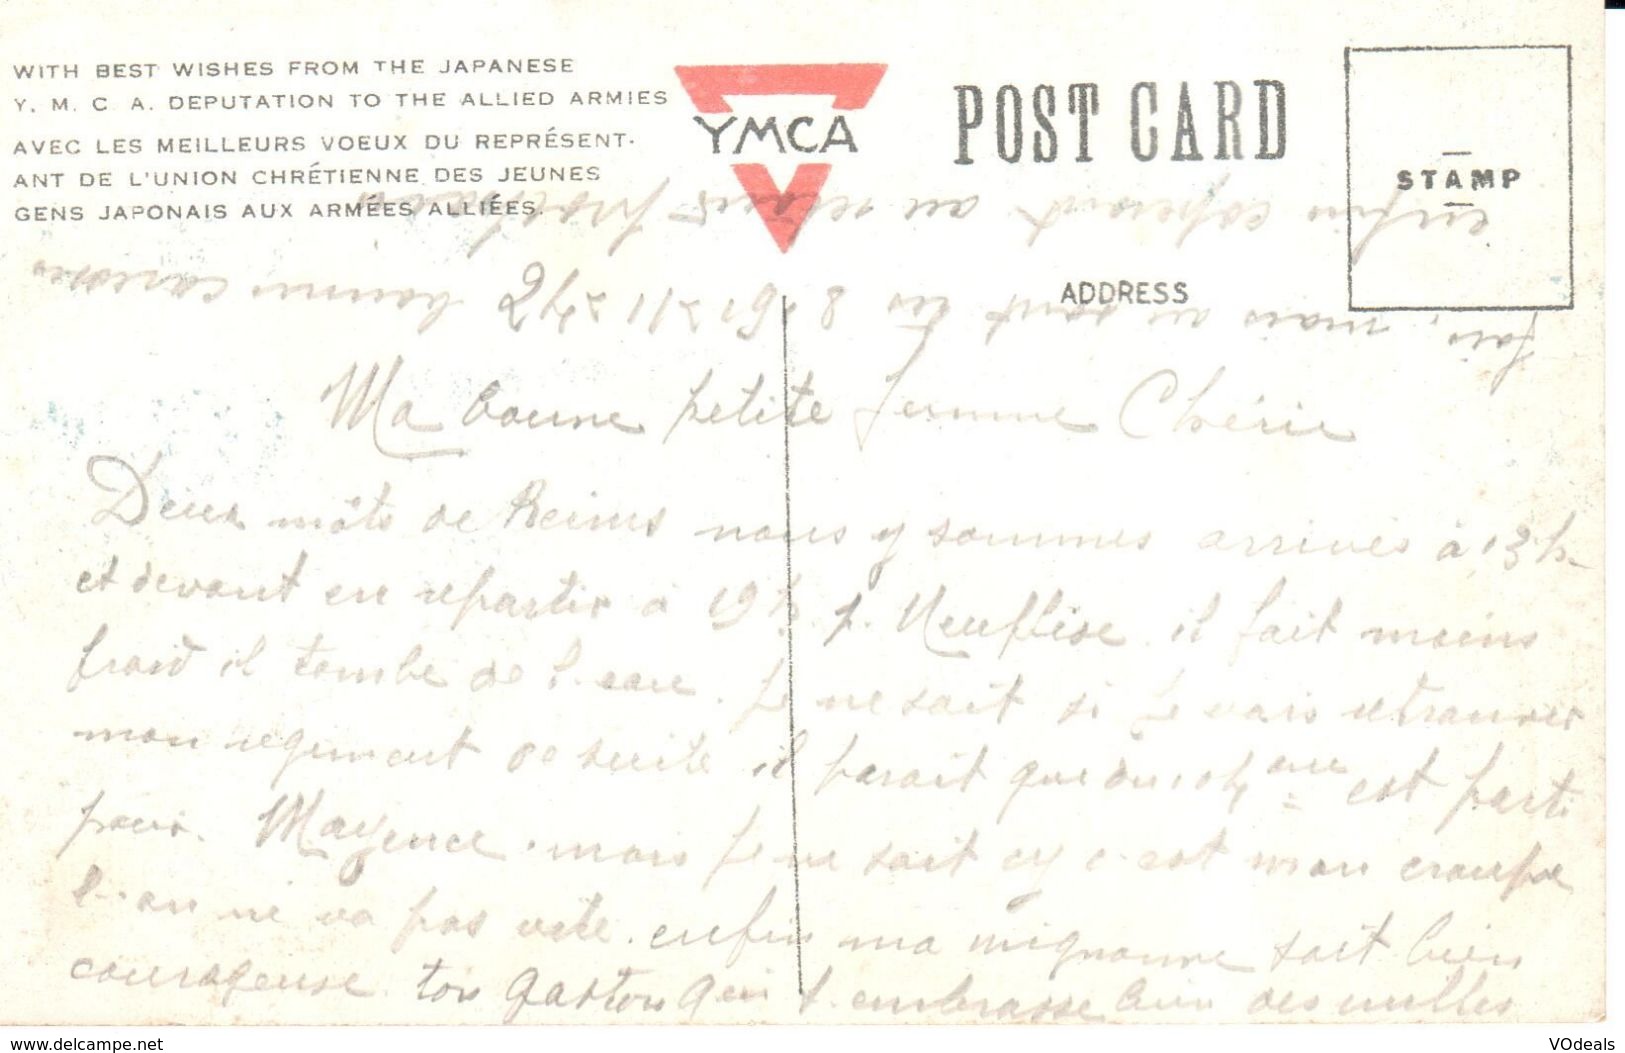 WITH BEST WISHES FROM THE JAPANESE
Y. M. C. A. DEPUTATION TO THE ALLIED ARMIES
AVEC LES MEILLEURS VOEUX DU REPRÉSENT-
ANT DE L'UNION CHRÉTIENNE DES JEUNES
GENS JAPONAIS AUX ARMÉES ALLIÉES.
YMCA
POST CARD
STAMP
ADDRESS
Ma bonne petite femme Chérie
Deux mots de Reims nous y sommes arrivés à 13h
et devont en repartir à 19h p. Neuflise il fait moins
froid il tombe de l'eau. Je ne sait si je vais retrouver
mon regiment de suite il parait que est parti
pour Mayence. mais je ne sait si c'est mon
l'on ne va pas vite. enfin ma mignonne soit bien
courageuse. ton Gaston qui t'embrasse bien des milles
fois, mais ce sont les caresses
enfin esperont au revoir
My Japanese YMCA
VOdeals